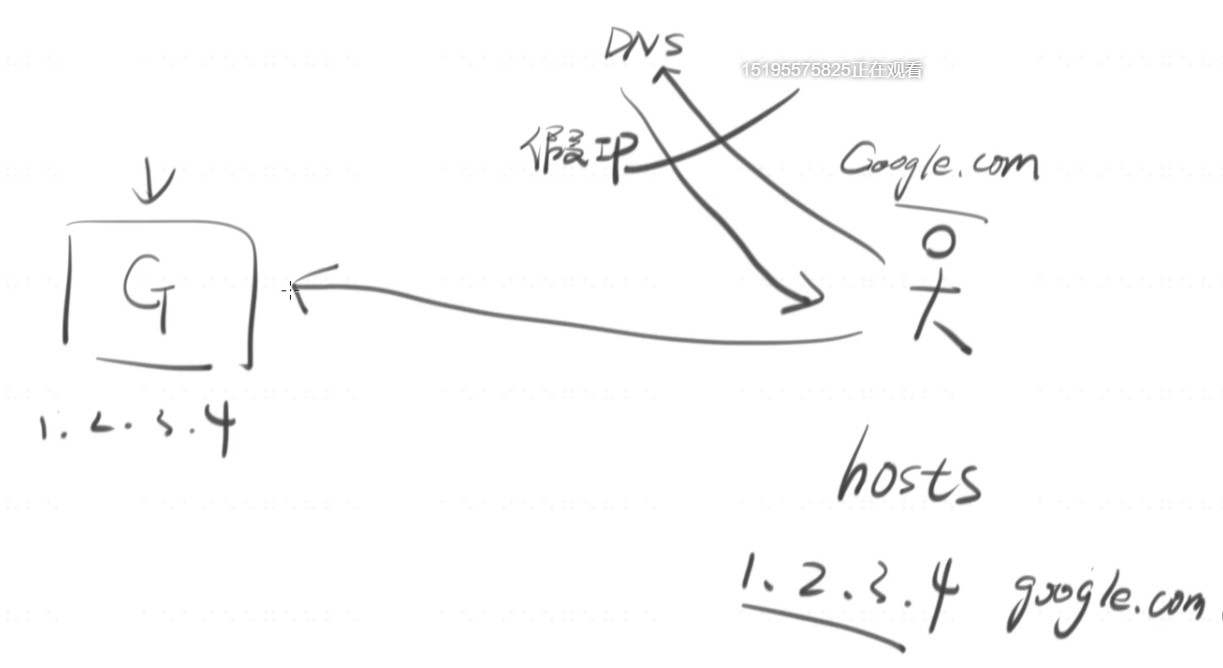 DNS
15195575825正在观看
假IP
Google.com
G
1.2.3.4
hosts
1.2.3.4 google.com